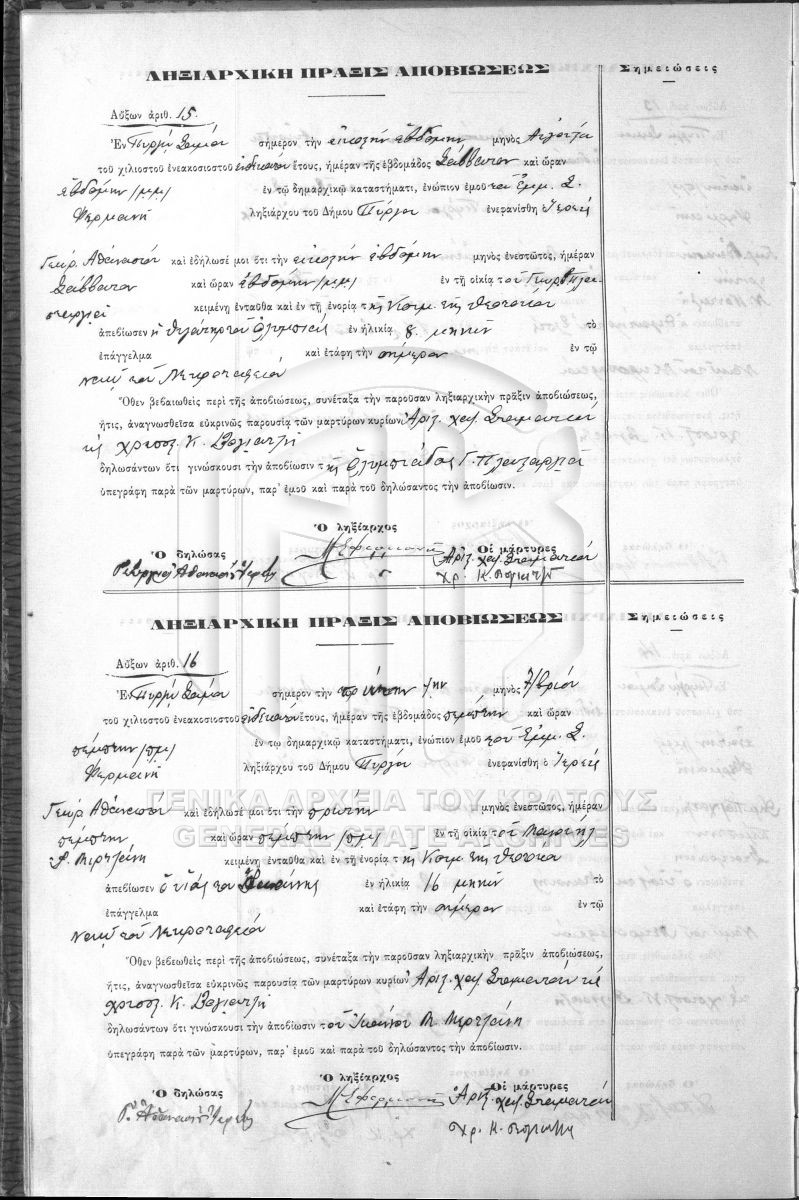 ΛΗΞΙΑΡΧΙΚΗ ΠΡΑΞΙΣ ΑΠΟΒΙΩΣΕΩΣ
Σημειώσεις
Αὔξων ἀριθ. 15.
Ἐν Πύργῳ Σάμου σήμερον τὴν εἰκοστὴν ἑβδόμην μηνὸς Αὐγούστου
τοῦ χιλιοστοῦ ἐνεακοσιοστοῦ ἑνδεκάτου ἔτους, ἡμέραν τῆς ἑβδομάδος Σάββατον καὶ ὥραν
ἑβδόμην /μμ/ ἐν τῷ δημαρχικῷ καταστήματι, ἐνώπιον ἐμοῦ τοῦ Ἐμμ. Σ.
ληξιάρχου τοῦ Δήμου Πύργου ἐνεφανίσθη ὁ Ἱερεὺς
Γεώρ. Ἀθανασίου καὶ ἐδήλωσέ μοι ὅτι τὴν εἰκοστὴν ἑβδόμην μηνὸς ἐνεστῶτος, ἡμέραν
Σάββατον καὶ ὥραν ἑβδόμην /μμ/ ἐν τῇ οἰκίᾳ τοῦ Γεωρ.
κειμένῃ ἐνταῦθα καὶ ἐν τῇ ἐνορίᾳ τῆς Κοιμ. τῆς Θεοτόκου
ἀπεβίωσεν ἡ θυγάτηρ του Ὀλυμπιὰς ἐν ἡλικίᾳ 8 μηνῶν τὸ
ἐπάγγελμα καὶ ἐτάφη τὴν σήμερον ἐν τῷ
Ναῷ τοῦ Νεκροταφείου
Ὅθεν βεβαιωθεὶς περὶ τῆς ἀποβιώσεως, συνέταξα τὴν παροῦσαν ληξιαρχικὴν πρᾶξιν ἀποβιώσεως,
ἥτις, ἀναγνωσθεῖσα εὐκρινῶς παρουσίᾳ τῶν μαρτύρων κυρίων Ἀριστ. χατζ. Σταματίου
κ Χρυσ. Κ.
δηλωσάντων ὅτι γινώσκουσι τὴν ἀποβίωσιν τῆς Ὀλυμπιάδος Γ.
ὑπεγράφη παρὰ τῶν μαρτύρων, παρ' ἐμοῦ καὶ παρὰ τοῦ δηλώσαντος τὴν ἀποβίωσιν.
Ὁ δηλώσας
Ὁ ληξίαρχος
Οἱ μάρτυρες
Γεώργιος Ἀθανασίου Ἱερεὺς
Ἀριστ. χατζ. Σταματίου
Χρ. Κ.
ΛΗΞΙΑΡΧΙΚΗ ΠΡΑΞΙΣ ΑΠΟΒΙΩΣΕΩΣ
Σημειώσεις
Αὔξων ἀριθ. 16
Ἐν Πύργῳ Σάμου σήμερον τὴν πρώτην /ην μηνὸς 7/βρίου
τοῦ χιλιοστοῦ ἐνεακοσιοστοῦ ἑνδεκάτου ἔτους, ἡμέραν τῆς ἑβδομάδος πέμπτην καὶ ὥραν
πέμπτην /πμ/ ἐν τῷ δημαρχικῷ καταστήματι, ἐνώπιον ἐμοῦ τοῦ Ἐμμ. Σ.
ληξιάρχου τοῦ Δήμου Πύργου ἐνεφανίσθη ὁ Ἱερεὺς
Γεώρ. Ἀθανασίου καὶ ἐδήλωσέ μοι ὅτι τὴν πρώτην μηνὸς ἐνεστῶτος, ἡμέραν
πέμπτην καὶ ὥραν πέμπτην /πμ/ ἐν τῇ οἰκίᾳ τοῦ Μανώλη
κειμένῃ ἐνταῦθα καὶ ἐν τῇ ἐνορίᾳ τῆς Κοιμ. τῆς Θεοτόκου
ἀπεβίωσεν ὁ υἱός του Ἰωάννης ἐν ἡλικίᾳ 16 μηνῶν τὸ
ἐπάγγελμα καὶ ἐτάφη τὴν σήμερον ἐν τῷ
Ναῷ τοῦ Νεκροταφείου
Ὅθεν βεβαιωθεὶς περὶ τῆς ἀποβιώσεως, συνέταξα τὴν παροῦσαν ληξιαρχικὴν πρᾶξιν ἀποβιώσεως,
ἥτις, ἀναγνωσθεῖσα εὐκρινῶς παρουσίᾳ τῶν μαρτύρων κυρίων Ἀριστ. χατζ. Σταματίου κ
Χρυσ. Κ.
δηλωσάντων ὅτι γινώσκουσι τὴν ἀποβίωσιν τοῦ Ἰωάννου Μ.
ὑπεγράφη παρὰ τῶν μαρτύρων, παρ' ἐμοῦ καὶ παρὰ τοῦ δηλώσαντος τὴν ἀποβίωσιν.
Ὁ δηλώσας
Ὁ ληξίαρχος
Οἱ μάρτυρες
Γ. Ἀθανασίου Ἱερεὺς
Ἀριστ. χατζ. Σταματίου
Χρ. Κ.
ΓΕΝΙΚΑ ΑΡΧΕΙΑ ΤΟΥ ΚΡΑΤΟΥΣ
GENERAL STATE ARCHIVES